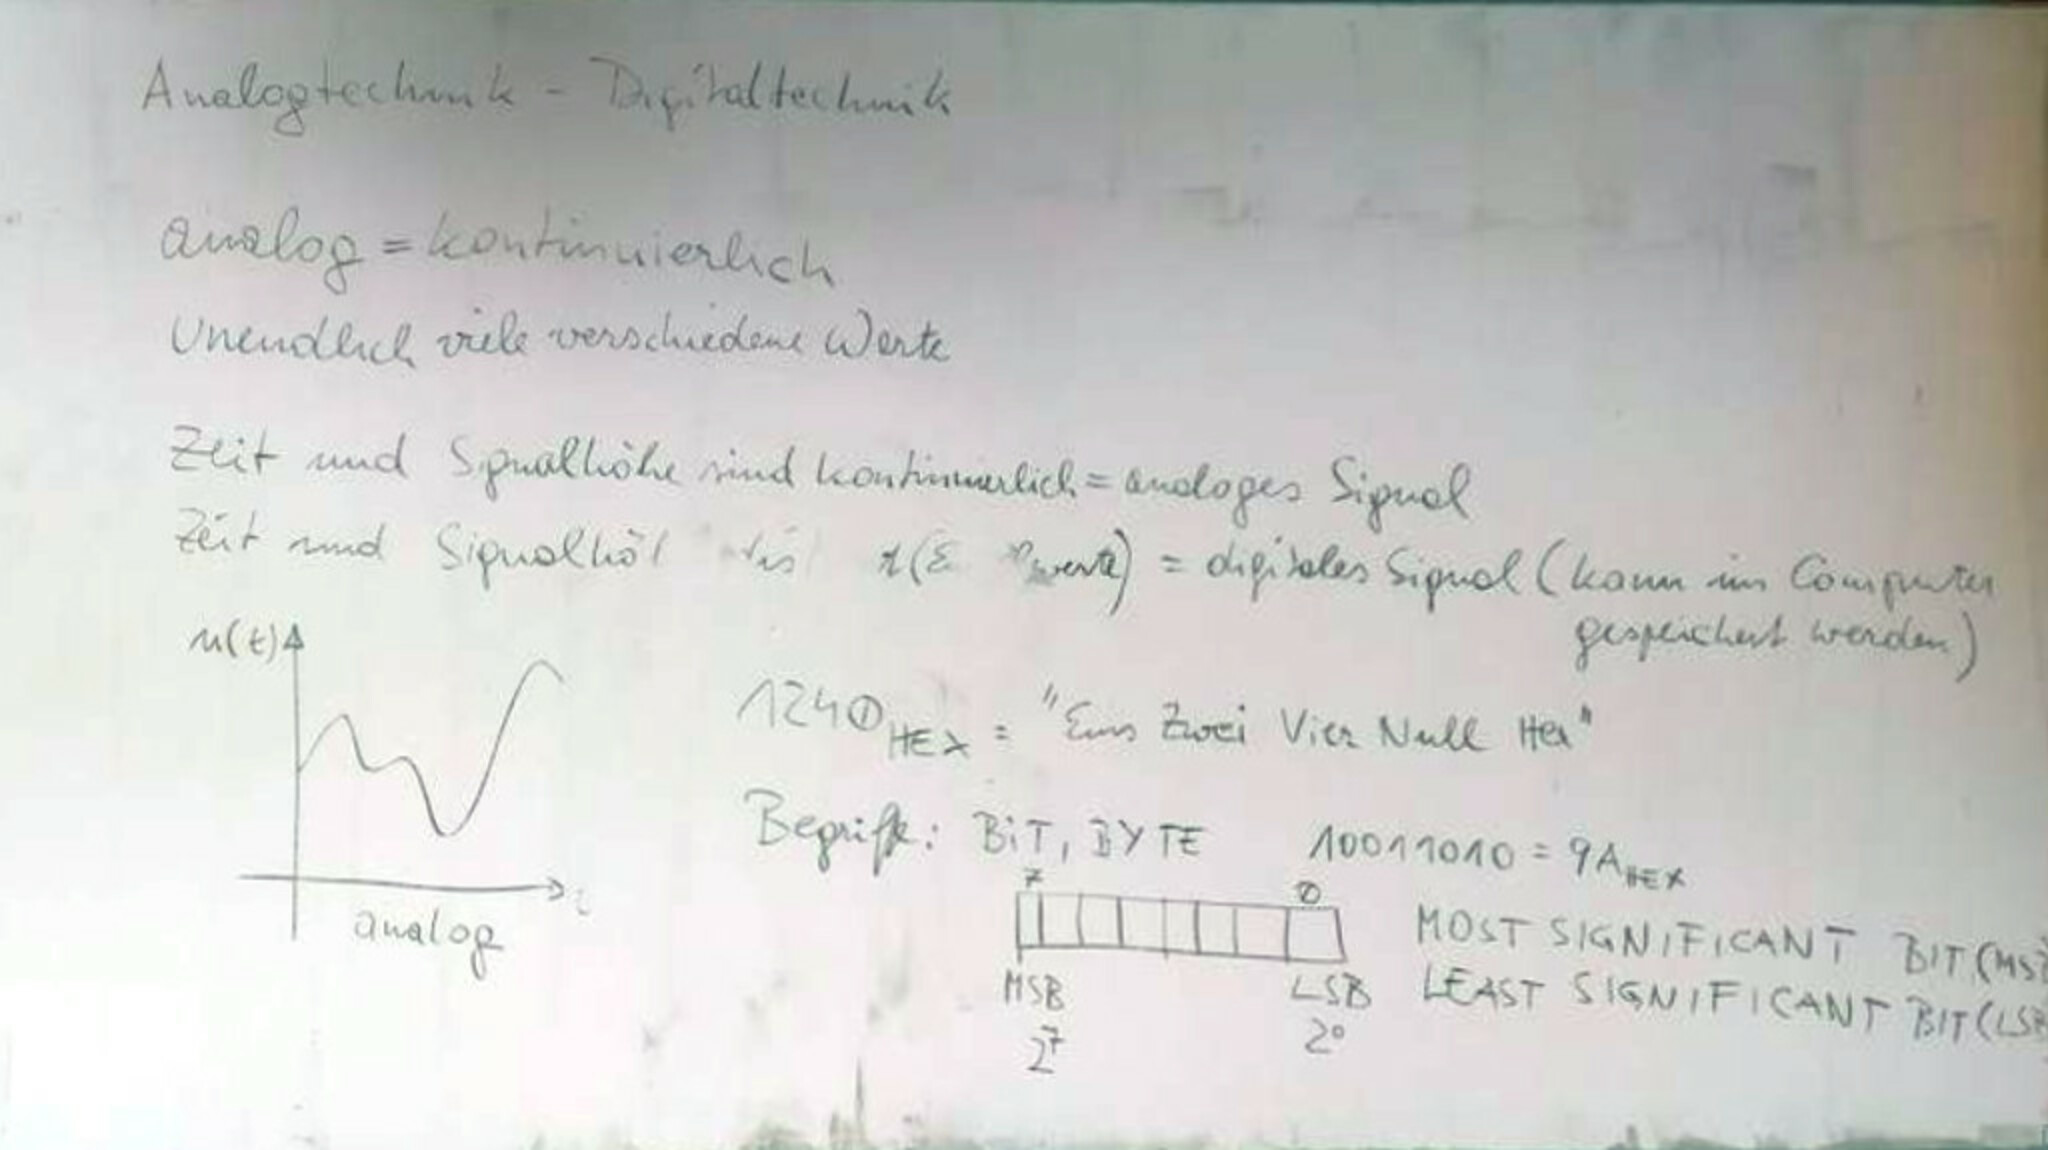 Analogtechnik - Digitaltechnik
analog = kontinuierlich
Unendlich viele verschiedene Werte
Zeit und Signalhöhe sind kontinuierlich = analoges Signal
Zeit und Signalhö = digitales Signal (kann im Computer
gespeichert werden)
u(t)
1240 HEX = "Eins Zwei Vier Null Hex"
Begriffe: BIT, BYTE 10011010 = 9A HEX
7 0
t
analog
MOST SIGNIFICANT BIT (MSB
MSB LSB
LEAST SIGNIFICANT BIT (LSB
2⁷ 2⁰